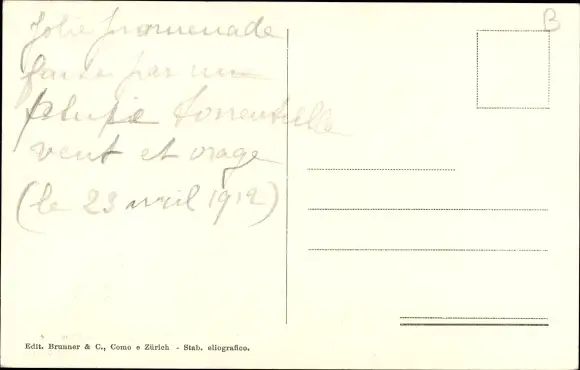 B
Jolie promenade
faite par une
pluie torrentielle
vent et orage
(le 23 avril 1912)
Edit. Brunner & C., Como e Zürich - Stab. eliografico.